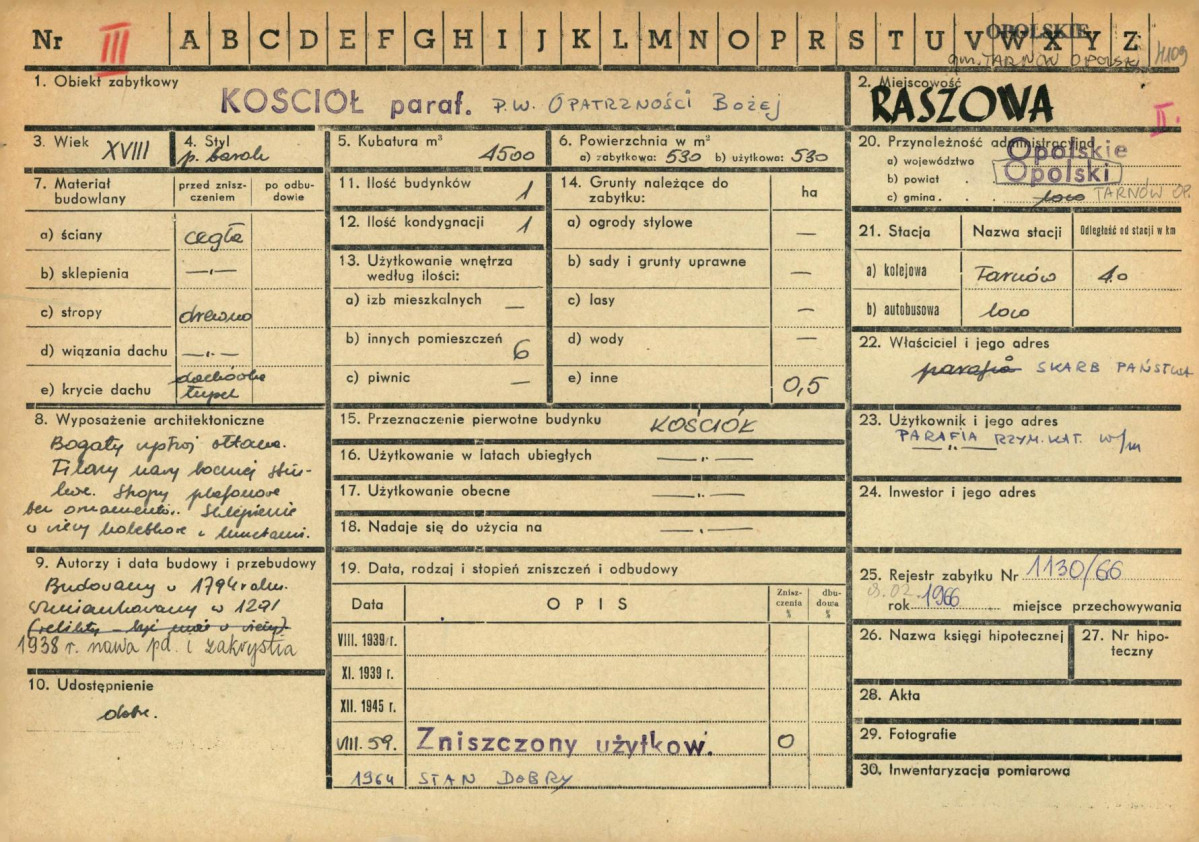 Nr III A B C D E F G H I J K L M N O P R S T U V W X Y Z
OPOLSKIE
gm. TARNÓW OPOLSKI 4109
1. Obiekt zabytkowy
KOŚCIÓŁ paraf. P.W. OPATRZNOŚCI BOŻEJ
2. Miejscowość
RASZOWA
II.
3. Wiek XVIII
4. Styl
p. barok
5. Kubatura m³ 4500
6. Powierzchnia w m²
a) zabytkowa: 530 b) użytkowa: 530
7. Materiał budowlany
przed zniszczeniem
po odbudowie
a) ściany cegła
b) sklepienia —„—
c) stropy drewno
d) wiązania dachu —„—
e) krycie dachu dachówka
łupek
8. Wyposażenie architektoniczne
Bogaty
Filary nawy bocznej
Stropy plafonowe
bez Sklepienie
w wieży kolebkowe z lunetami.
9. Autorzy i data budowy i przebudowy
Budowany w 1794 roku.
Wzmiankowany w 1291
(relikty - być może w wieży)
1938 r. nawa pd. i zakrystia
10. Udostępnienie
dobre.
11. Ilość budynków 1
12. Ilość kondygnacji 1
13. Użytkowanie wnętrza
według ilości:
a) izb mieszkalnych —
b) innych pomieszczeń 6
c) piwnic —
14. Grunty należące do
zabytku: ha
a) ogrody stylowe —
b) sady i grunty uprawne —
c) lasy —
d) wody —
e) inne 0,5
15. Przeznaczenie pierwotne budynku KOŚCIÓŁ
16. Użytkowanie w latach ubiegłych —„—
17. Użytkowanie obecne —„—
18. Nadaje się do użycia na —„—
19. Data, rodzaj i stopień zniszczeń i odbudowy
Data OPIS Zniszczenia % dbudowa %
VIII. 1939 r.
XI. 1939 r.
XII. 1945 r.
VIII. 59. Zniszczony użytkow. 0
1964 STAN DOBRY
20. Przynależność administracyjna
a) województwo Opolskie
b) powiat Opolski
c) gmina loco TARNÓW OP.
21. Stacja Nazwa stacji Odległość od stacji w km
a) kolejowa Tarnów 4.0
b) autobusowa loco
22. Właściciel i jego adres
parafia SKARB PAŃSTWA
23. Użytkownik i jego adres
PARAFIA RZYM. KAT. w/m
—„—
24. Inwestor i jego adres
25. Rejestr zabytku Nr 1130/66
9.02.
rok 1966 miejsce przechowywania
26. Nazwa księgi hipotecznej
27. Nr hipoteczny
28. Akta
29. Fotografie
30. Inwentaryzacja pomiarowa